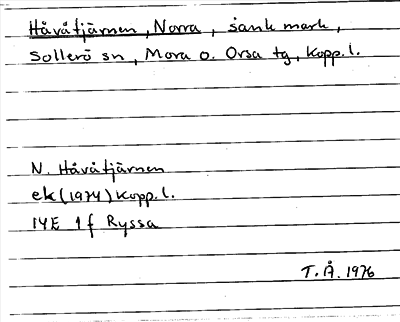 Håvåtjärnen, Norra, sank mark,
Sollerö sn, Mora o. Orsa tg, Kopp. l.
N. Håvåtjärnen
ek (1974) Kopp. l.
14E 1f Ryssa
T. Å. 1976